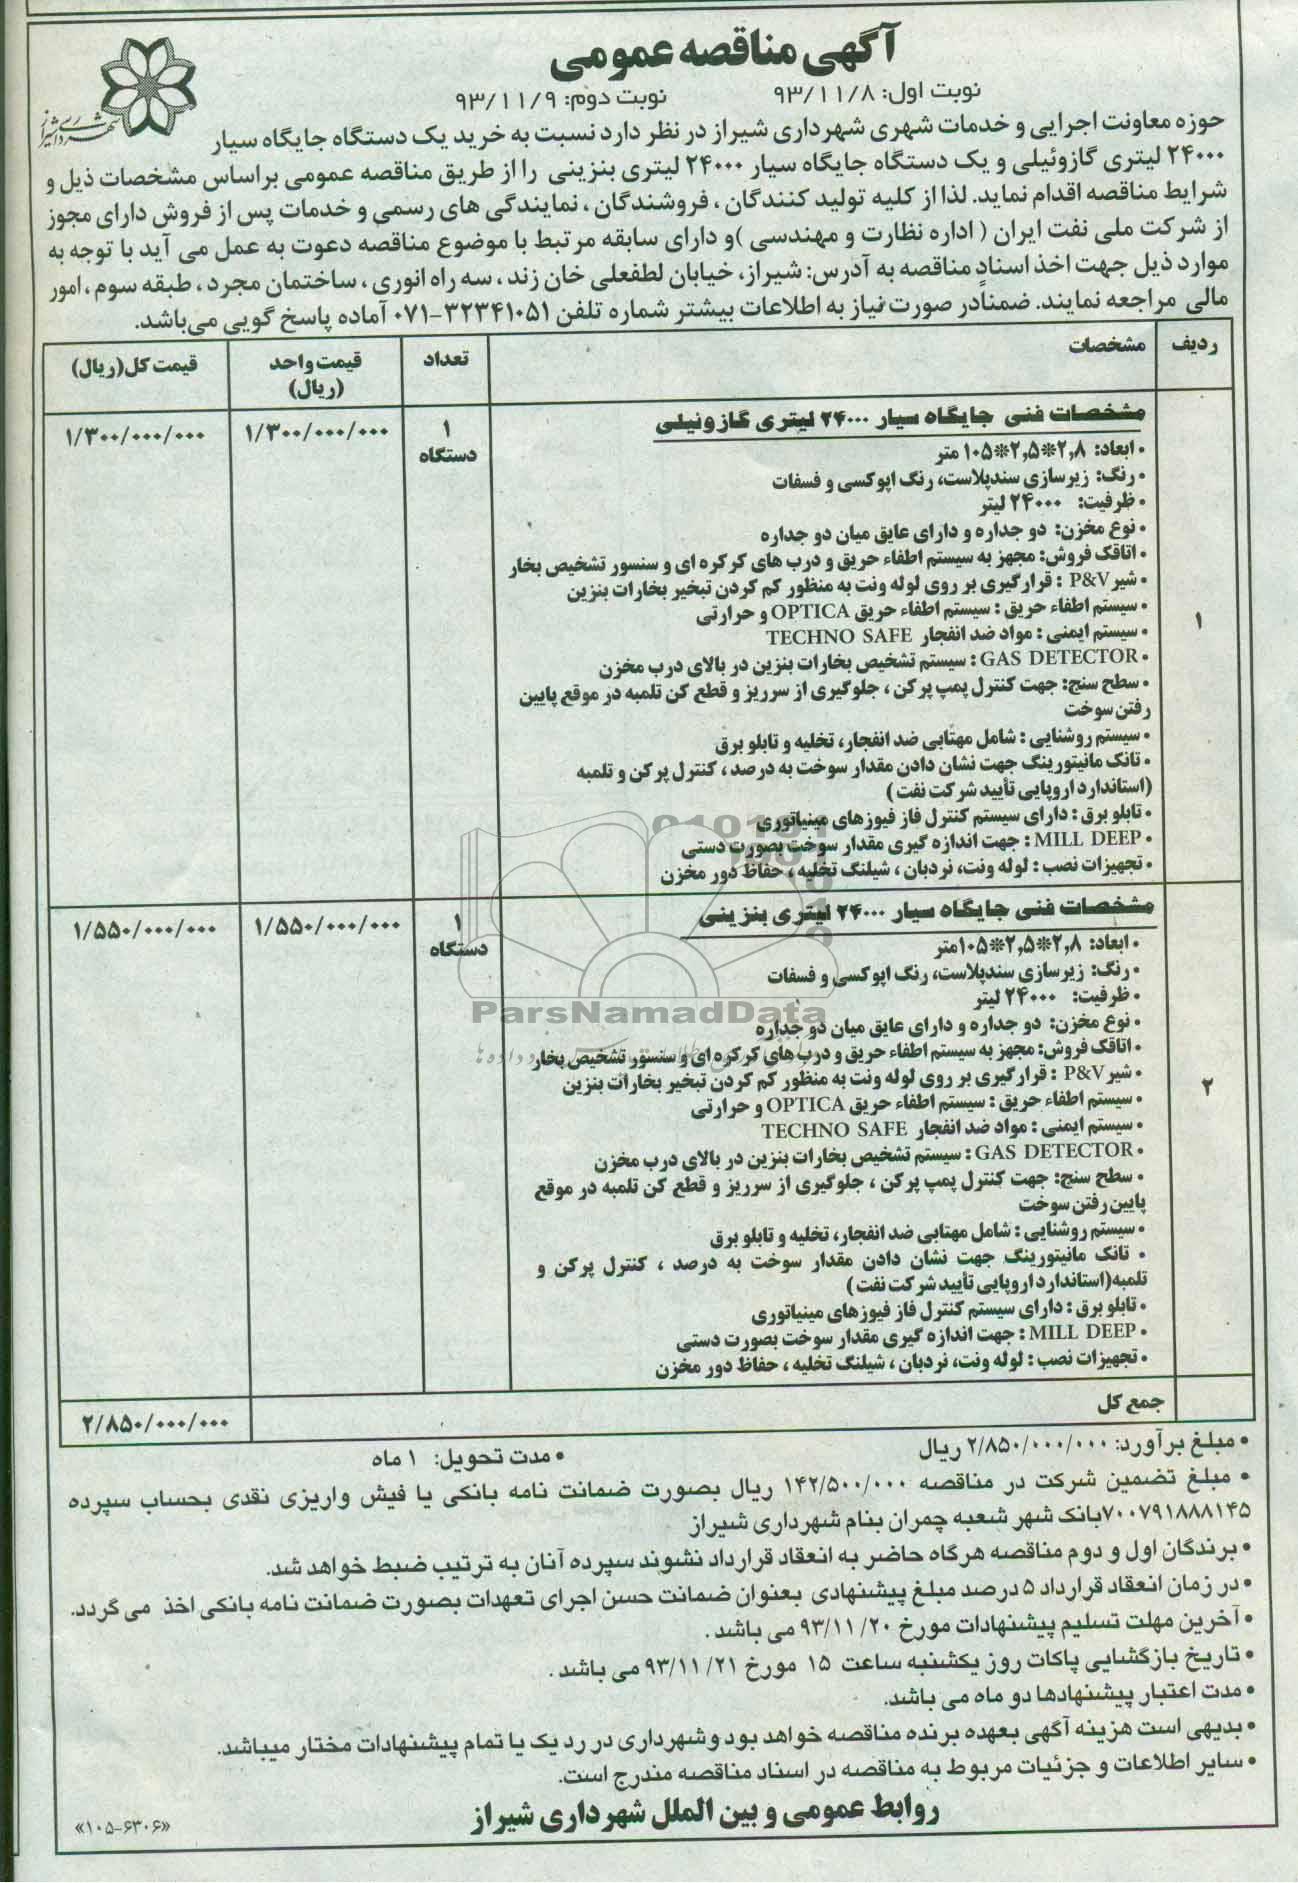 آگهی مناقصه عمومی
نوبت اول: ۹۳/۱۱/۸
نوبت دوم: ۹۳/۱۱/۹
شهرداری شیراز
حوزه معاونت اجرایی و خدمات شهری شهرداری شیراز در نظر دارد نسبت به خرید یک دستگاه جایگاه سیار
۲۴۰۰۰ لیتری گازوئیلی و یک دستگاه جایگاه سیار ۲۴۰۰۰ لیتری بنزینی را از طریق مناقصه عمومی براساس مشخصات ذیل و
شرایط مناقصه اقدام نماید. لذا از کلیه تولید کنندگان ، فروشندگان ، نمایندگی های رسمی و خدمات پس از فروش دارای مجوز
از شرکت ملی نفت ایران ( اداره نظارت و مهندسی )و دارای سابقه مرتبط با موضوع مناقصه دعوت به عمل می آید با توجه به
موارد ذیل جهت اخذ اسناد مناقصه به آدرس: شیراز، خیابان لطفعلی خان زند ، سه راه انوری ، ساختمان مجرد ، طبقه سوم ، امور
مالی مراجعه نمایند. ضمناً در صورت نیاز به اطلاعات بیشتر شماره تلفن ۳۲۳۴۱۰۵۱-۰۷۱ آماده پاسخ گویی می‌باشد.
ردیف
مشخصات
تعداد
قیمت واحد
(ریال)
قیمت کل(ریال)
۱
مشخصات فنی جایگاه سیار ۲۴۰۰۰ لیتری گازوئیلی
• ابعاد: ۲٫۸*۲٫۵*۱۰۵ متر
• رنگ: زیرسازی سندپلاست، رنگ اپوکسی و فسفات
• ظرفیت: ۲۴۰۰۰ لیتر
• نوع مخزن: دو جداره و دارای عایق میان دو جداره
• اتاقک فروش: مجهز به سیستم اطفاء حریق و درب های کرکره ای و سنسور تشخیص بخار
• شیر P&V : قرارگیری بر روی لوله ونت به منظور کم کردن تبخیر بخارات بنزین
• سیستم اطفاء حریق : سیستم اطفاء حریق OPTICA و حرارتی
• سیستم ایمنی : مواد ضد انفجار TECHNO SAFE
• GAS DETECTOR : سیستم تشخیص بخارات بنزین در بالای درب مخزن
• سطح سنج: جهت کنترل پمپ پرکن ، جلوگیری از سرریز و قطع کن تلمبه در موقع پایین
رفتن سوخت
• سیستم روشنایی : شامل مهتابی ضد انفجار، تخلیه و تابلو برق
• تانک مانیتورینگ جهت نشان دادن مقدار سوخت به درصد ، کنترل پرکن و تلمبه
(استاندارد اروپایی تأیید شرکت نفت )
• تابلو برق : دارای سیستم کنترل فاز فیوزهای مینیاتوری
• MILL DEEP : جهت اندازه گیری مقدار سوخت بصورت دستی
• تجهیزات نصب : لوله ونت، نردبان ، شیلنگ تخلیه ، حفاظ دور مخزن
۱
دستگاه
۱/۳۰۰/۰۰۰/۰۰۰
۱/۳۰۰/۰۰۰/۰۰۰
۲
مشخصات فنی جایگاه سیار ۲۴۰۰۰ لیتری بنزینی
• ابعاد: ۲٫۸*۲٫۵*۱۰۵متر
• رنگ: زیرسازی سندپلاست، رنگ اپوکسی و فسفات
• ظرفیت: ۲۴۰۰۰ لیتر
• نوع مخزن: دو جداره و دارای عایق میان دو جداره
• اتاقک فروش: مجهز به سیستم اطفاء حریق و درب های کرکره ای و سنسور تشخیص بخار
• شیر P&V : قرارگیری بر روی لوله ونت به منظور کم کردن تبخیر بخارات بنزین
• سیستم اطفاء حریق : سیستم اطفاء حریق OPTICA و حرارتی
• سیستم ایمنی : مواد ضد انفجار TECHNO SAFE
• GAS DETECTOR : سیستم تشخیص بخارات بنزین در بالای درب مخزن
• سطح سنج: جهت کنترل پمپ پرکن ، جلوگیری از سرریز و قطع کن تلمبه در موقع
پایین رفتن سوخت
• سیستم روشنایی : شامل مهتابی ضد انفجار، تخلیه و تابلو برق
• تانک مانیتورینگ جهت نشان دادن مقدار سوخت به درصد ، کنترل پرکن و
تلمبه(استاندارد اروپایی تأیید شرکت نفت )
• تابلو برق : دارای سیستم کنترل فاز فیوزهای مینیاتوری
• MILL DEEP : جهت اندازه گیری مقدار سوخت بصورت دستی
• تجهیزات نصب : لوله ونت، نردبان ، شیلنگ تخلیه ، حفاظ دور مخزن
۱
دستگاه
۱/۵۵۰/۰۰۰/۰۰۰
۱/۵۵۰/۰۰۰/۰۰۰
ParsNamadData
جمع کل
۲/۸۵۰/۰۰۰/۰۰۰
• مبلغ برآورد: ۲/۸۵۰/۰۰۰/۰۰۰ ریال
• مدت تحویل: ۱ ماه
• مبلغ تضمین شرکت در مناقصه ۱۴۲/۵۰۰/۰۰۰ ریال بصورت ضمانت نامه بانکی یا فیش واریزی نقدی بحساب سپرده
۷۰۰۷۹۱۸۸۸۱۴۵بانک شهر شعبه چمران بنام شهرداری شیراز
• برندگان اول و دوم مناقصه هرگاه حاضر به انعقاد قرارداد نشوند سپرده آنان به ترتیب ضبط خواهد شد.
• در زمان انعقاد قرارداد ۵ درصد مبلغ پیشنهادی بعنوان ضمانت حسن اجرای تعهدات بصورت ضمانت نامه بانکی اخذ می گردد.
• آخرین مهلت تسلیم پیشنهادات مورخ ۹۳/۱۱/۲۰ می باشد .
• تاریخ بازگشایی پاکات روز یکشنبه ساعت ۱۵ مورخ ۹۳/۱۱/۲۱ می باشد .
• مدت اعتبار پیشنهادها دو ماه می باشد.
• بدیهی است هزینه آگهی بعهده برنده مناقصه خواهد بود و شهرداری در رد یک یا تمام پیشنهادات مختار میباشد.
• سایر اطلاعات و جزئیات مربوط به مناقصه در اسناد مناقصه مندرج است.
روابط عمومی و بین الملل شهرداری شیراز
«۱۰۵-۶۳۰۶»